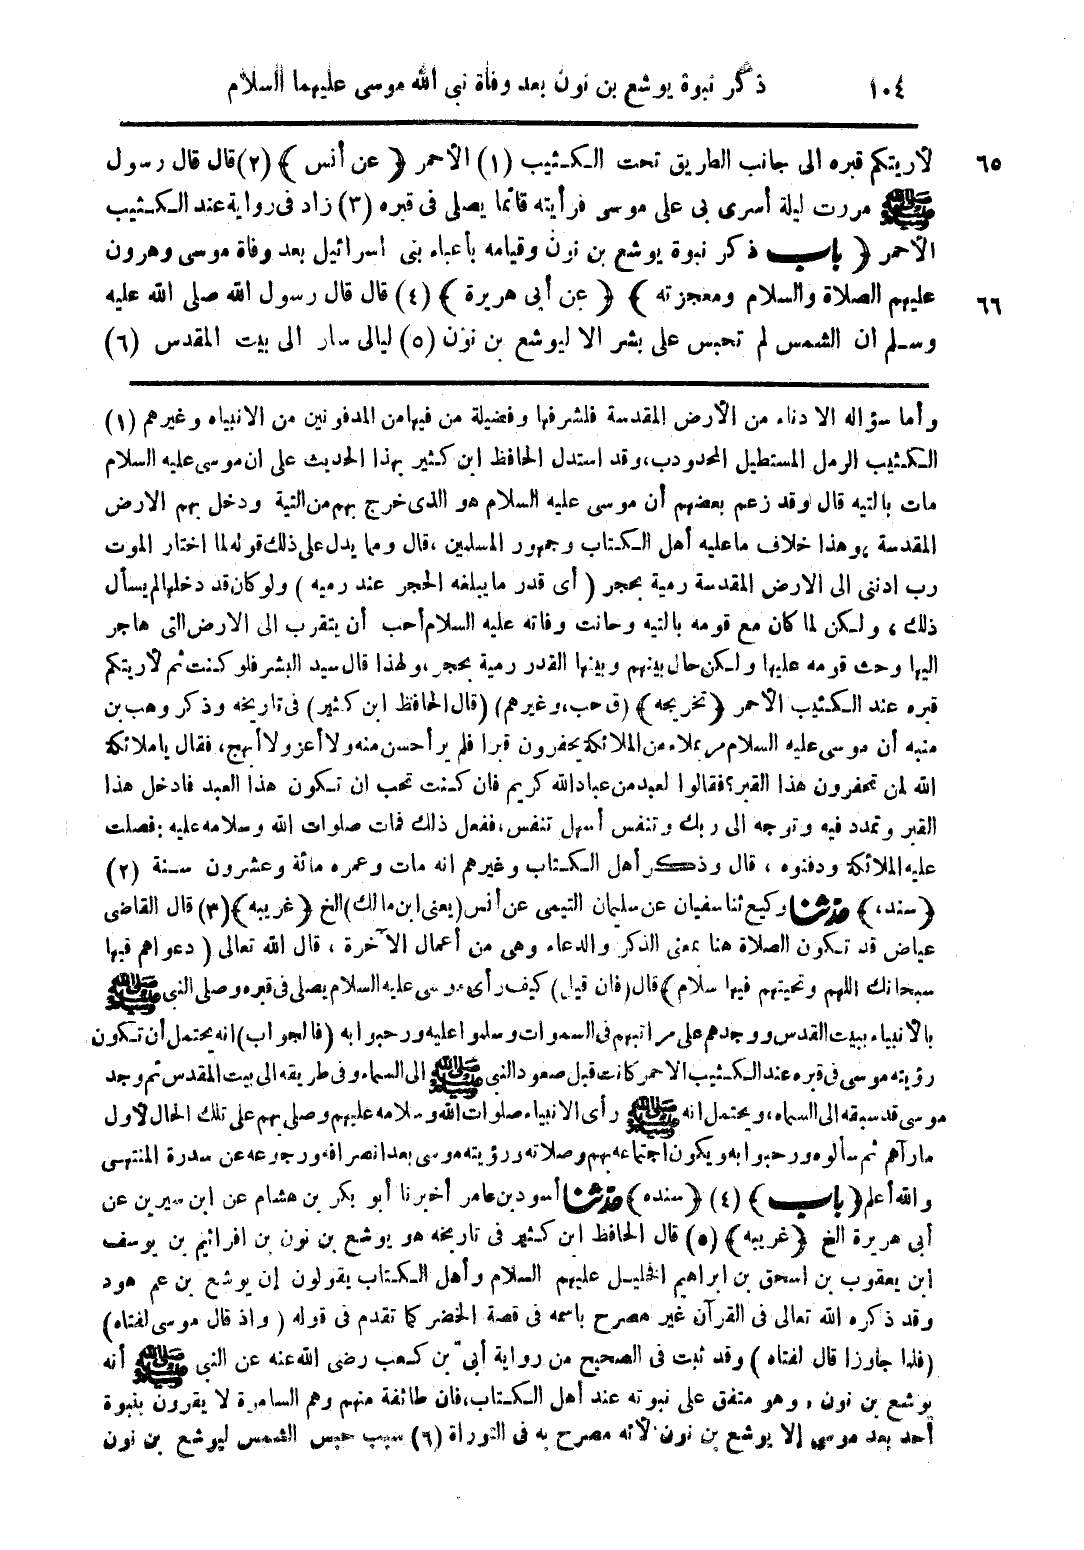 ١٠٤ ذكر نبوة يوشع بن نون بعد وفاة نبى الله موسى عليهما السلام
٦٥ لأريتكم قبره الى جانب الطريق تحت الكثيب (١) الأحمر ﴿ عن أنس ﴾ (٢) قال قال رسول
ﷺ مررت ليلة أسرى بى على موسى فرأيته قائما يصلى فى قبره (٣) زاد فى رواية عند الكثيب
الأحمر ﴿ باب ذكر نبوة يوشع بن نون وقيامه بأعباء بنى اسرائيل بعد وفاة موسى وهرون
٦٦ عليهم الصلاة والسلام ومعجزته ﴾ ﴿ عن أبى هريرة ﴾ (٤) قال قال رسول الله صلى الله عليه
وسلم ان الشمس لم تحبس على بشر الا ليوشع بن نون (٥) ليالى سار الى بيت المقدس (٦)
وأما سؤاله الادناء من الأرض المقدسة فلشرفها وفضيلة من فيها من المدفونين من الانبياء وغيرهم (١)
الكثيب الرمل المستطيل المحدودب، وقد استدل الحافظ ابن كثير بهذا الحديث على ان موسى عليه السلام
مات بالتيه قال وقد زعم بعضهم أن موسى عليه السلام هو الذى خرج بهم من التية ودخل بهم الارض
المقدسة، وهذا خلاف ما عليه أهل الكتاب وجمهور المسلمين، قال ومما يدل على ذلك قوله لما اختار الموت
رب ادننى الى الارض المقدسة رمية بحجر ( أى قدر ما يبلغه الحجر عند رميه ) ولو كان قد دخلها لم يسأل
ذلك، ولكن لما كان مع قومه بالتيه وحانت وفاته عليه السلام أحب أن يتقرب الى الارض التى هاجر
اليها وحث قومه عليها ولكن حال بينهم وبينها القدر رمية بحجر، ولهذا قال سيد البشر فلو كنت ثم لأريتكم
قبره عند الكثيب الأحمر ﴿ تخريجه ﴾ (ق حب، وغيرهم) (قال الحافظ ابن كثير) فى تاريخه وذكر وهب بن
منبه أن موسى عليه السلام مر بملاء من الملائكة يحفرون قبرا فلم ير أحسن منه ولا أعز ولا أبهج، فقال يا ملائكة
الله لمن تحفرون هذا القبر؟ فقالوا لعبد من عباد الله كريم فان كنت تحب ان تكون هذا العبد فادخل هذا
القبر وتمدد فيه وتوجه الى ربك وتنفس أسهل تنفس، ففعل ذلك فمات صلوات الله وسلامه عليه فصلت
عليه الملائكة ودفنوه، قال وذكر أهل الكتاب وغيرهم انه مات وعمره مائة وعشرون سنة (٢)
﴿ سنده ﴾ حدثنا وكيع ثنا سفيان عن سليمان التيمى عن أنس (يعنى ابن مالك) الخ ﴿ غريبه ﴾ (٣) قال القاضى
عياض قد تكون الصلاة هنا بمعنى الذكر والدعاء وهى من أعمال الآخرة، قال الله تعالى ( دعواهم فيها
سبحانك اللهم وتحيتهم فيها سلام ) قال (فان قيل) كيف رأى موسى عليه السلام يصلى فى قبره وصلى النبى ﷺ
بالأنبياء ببيت القدس ووجدهم على مراتبهم فى السموات وسلموا عليه ورحبوا به (فالجواب) انه يحتمل أن تكون
رؤيته موسى فى قبره عند الكثيب الاحمر كانت قبل صعود النبى ﷺ الى السماء وفى طريقه الى بيت المقدس ثم وجد
موسى قد سبقه الى السماء، ويحتمل انه ﷺ رأى الانبياء صلوات الله وسلامه عليهم وصلى بهم على تلك الحال لأول
ما رآهم ثم سألوه ورحبوا به ويكون اجتماعه بهم وصلاته ورؤيته موسى بعد انصرافه ورجوعه عن سدرة المنتهى
والله أعلم ﴿ باب ﴾ (٤) ﴿ سنده ﴾ حدثنا أسود بن عامر أخبرنا أبو بكر بن هشام عن ابن سيرين عن
أبى هريرة الخ ﴿ غريبه ﴾ (٥) قال الحافظ ابن كثير فى تاريخه هو يوشع بن نون بن افرائيم بن يوسف
ابن يعقوب بن اسحق بن ابراهيم الخليل عليهم السلام وأهل الكتاب يقولون إن يوشع بن عم هود
وقد ذكره الله تعالى فى القرآن غير مصرح باسمه فى قصة الخضر كما تقدم فى قوله ( واذ قال موسى لفتاه)
(فلما جاوزا قال لفتاه ) وقد ثبت فى الصحيح من رواية أبىّ بن كعب رضى الله عنه عن النبى ﷺ أنه
يوشع بن نون، وهو متفق على نبوته عند أهل الكتاب، فان طائفة منهم وهم السامرة لا يقرون بنبوة
أحد بعد موسى إلا يوشع بن نون لأنه مصرح به فى التوراة (٦) سبب حبس الشمس ليوشع بن نون